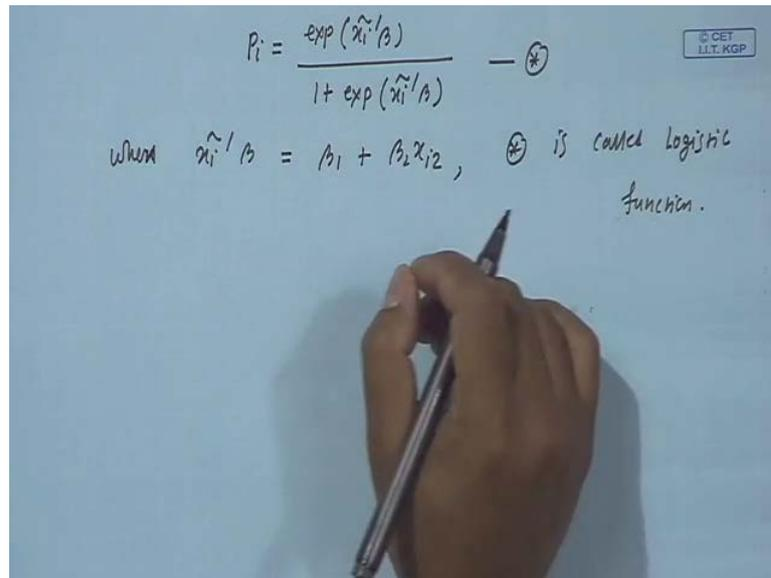 © CET
I.I.T. KGP
Pi = exp(x̃i'β) / 1 + exp(x̃i'β) — ⊛
where x̃i'β = β1 + β2 xi2, ⊛ is called Logistic
function.